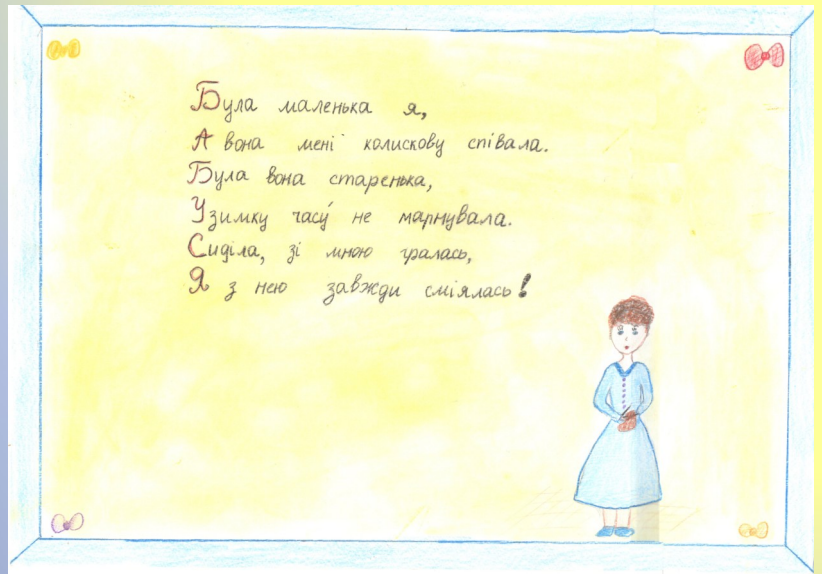 Була маленька я,
А вона мені колискову співала.
Була вона старенька,
Узимку часу не марнувала.
Сиділа, зі мною гралась,
Я з нею завжди сміялась!